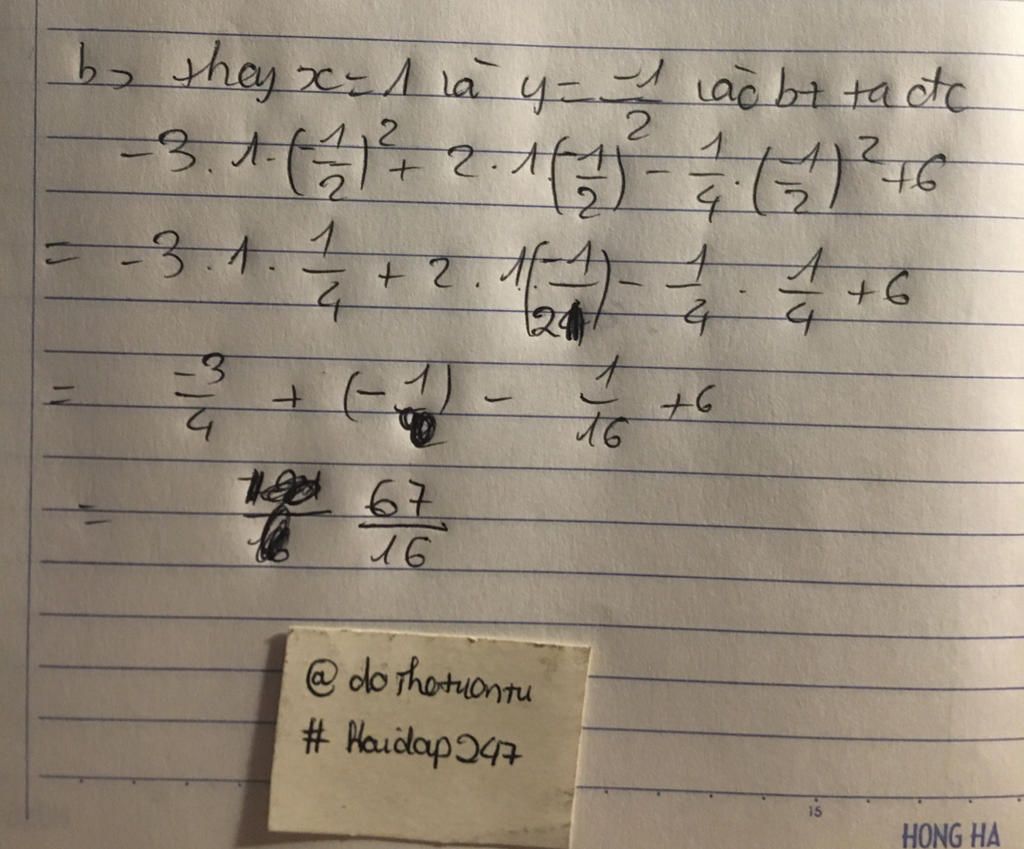 b> thay x = 1 và y = -1/2 vào bt ta đc
-3 . 1 . (-1/2)² + 2 . 1 (-1/2) - 1/4 . (-1/2)² + 6
= -3 . 1 . 1/4 + 2 . 1 . (-1/2) - 1/4 . 1/4 + 6
= -3/4 + (-1) - 1/16 + 6
= 67/16
@ do Thotuontu
# Hoidap247
15
HONG HA